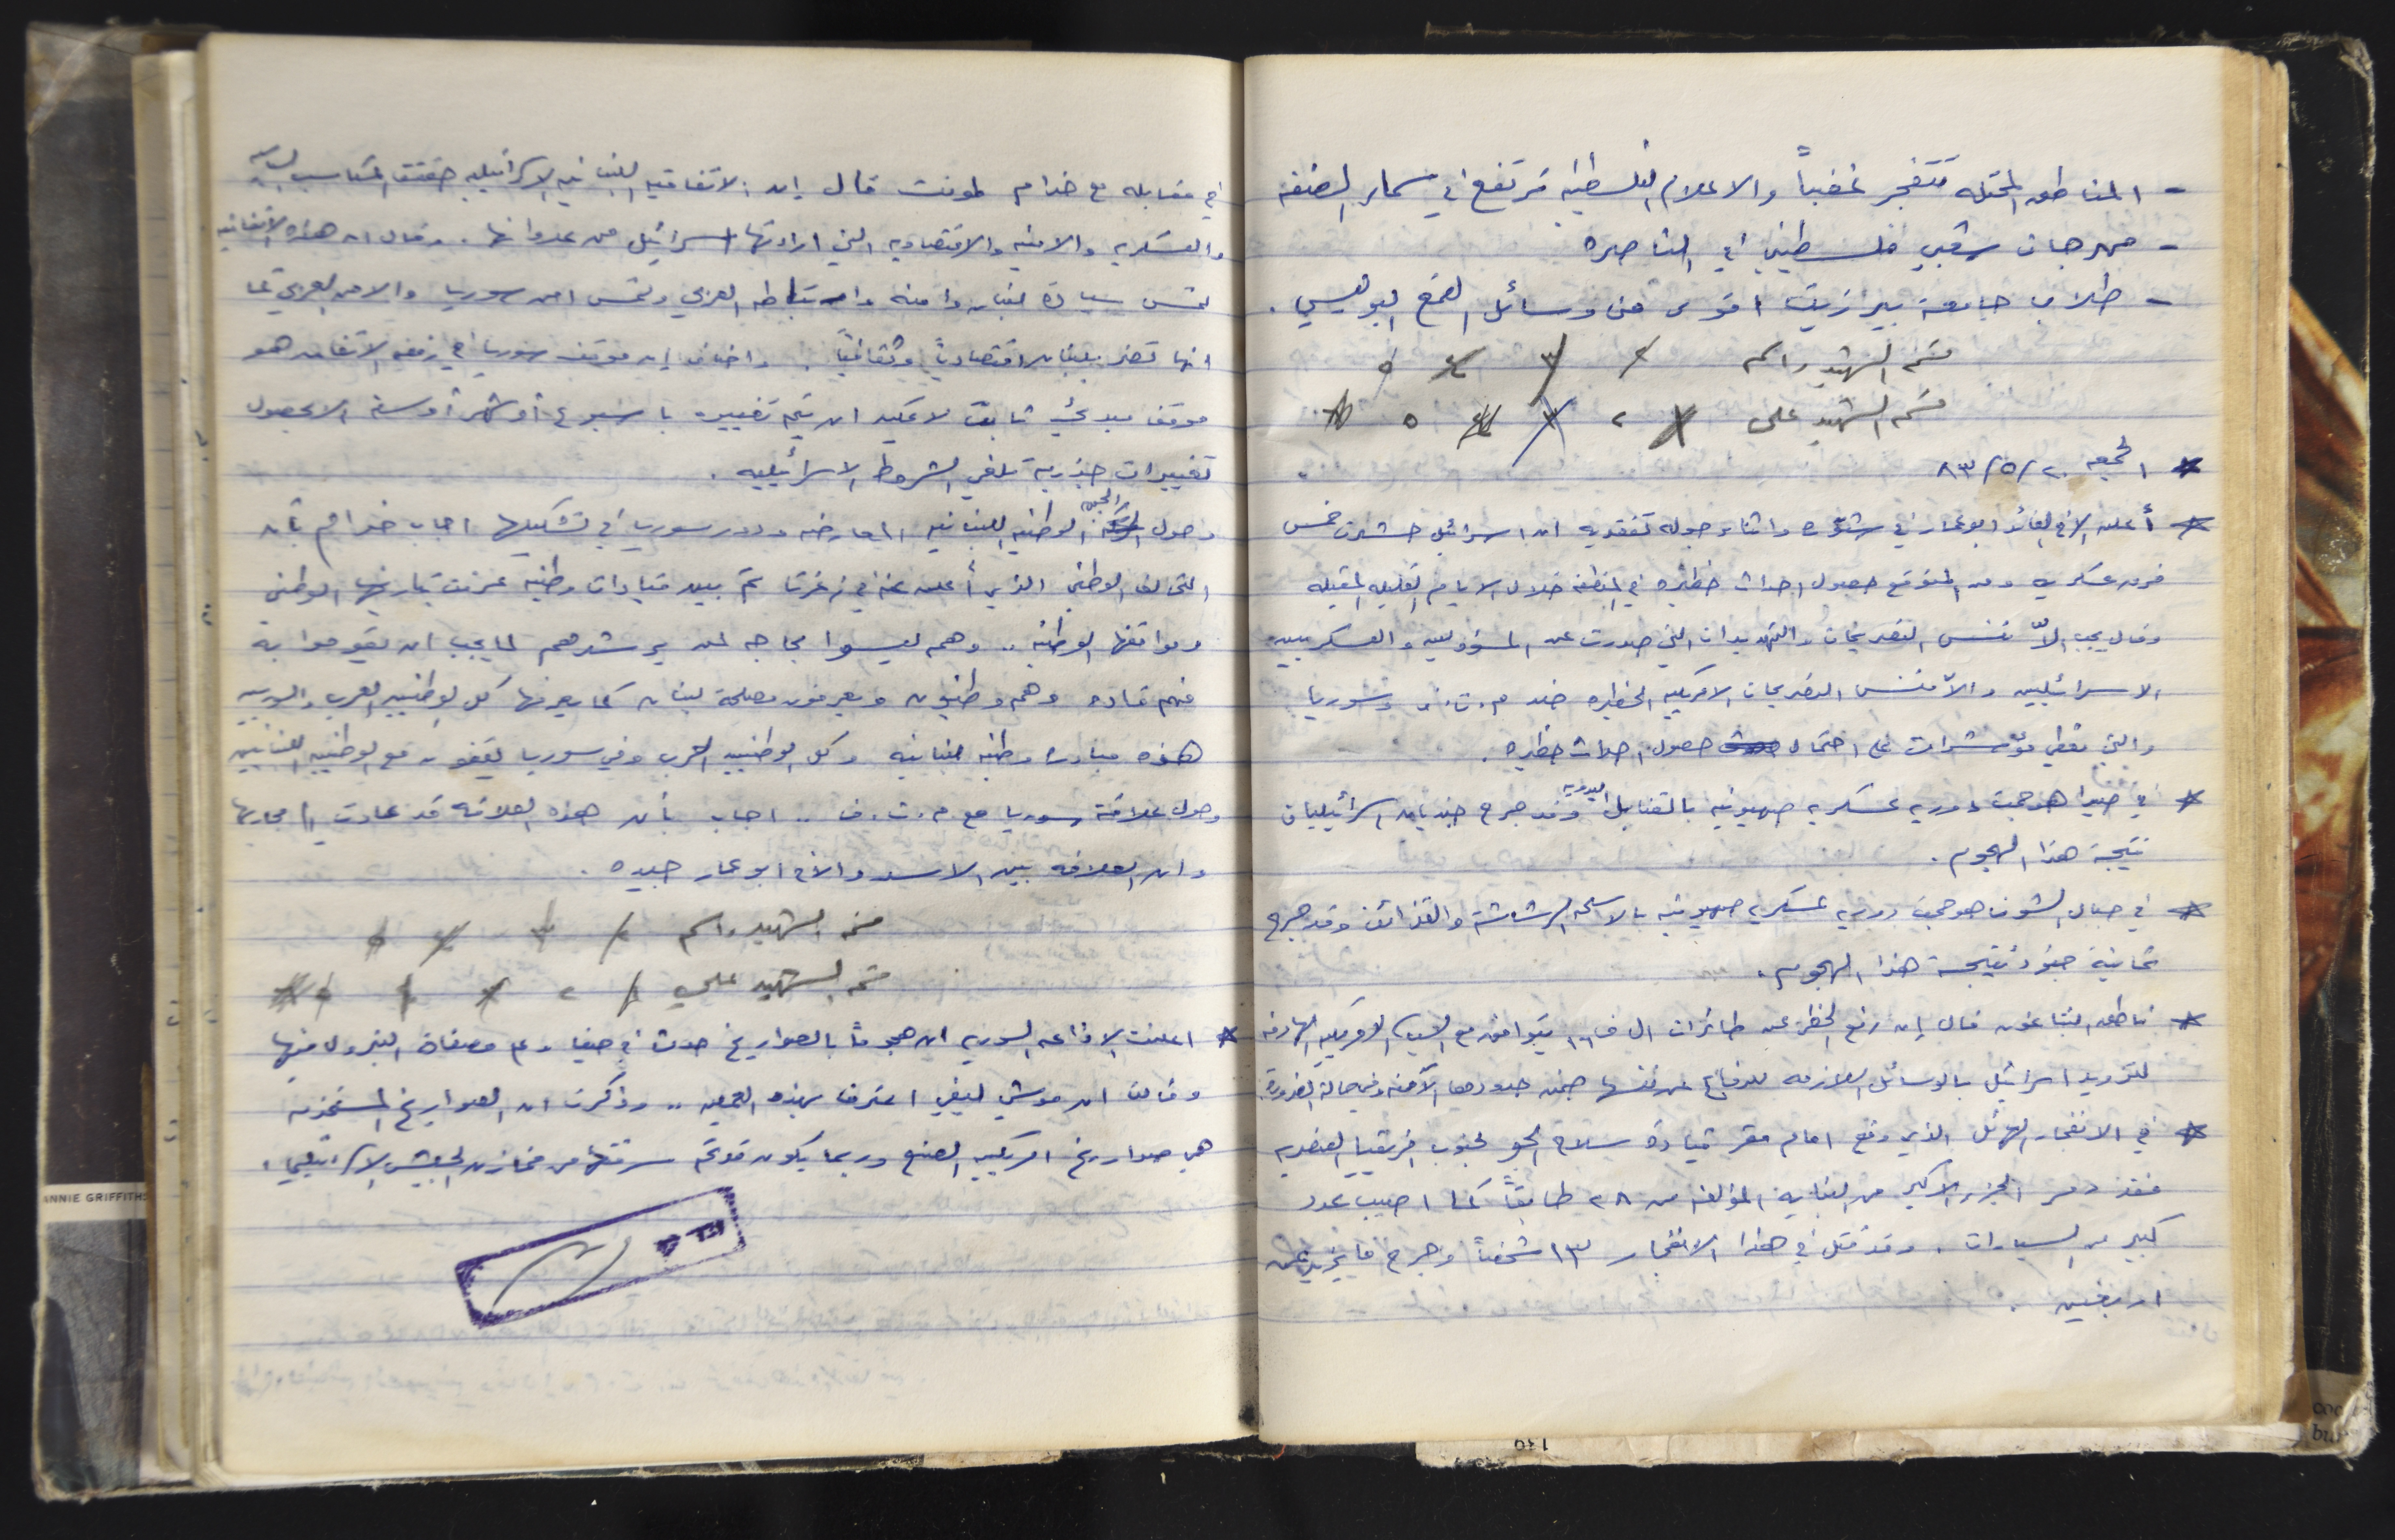 - المناطق المحتله تتفجر غضباً والاعلام الفلسطينيه ترتفع في سماء الضفه
- مهرجان شعبي فلسطيني في الناصره
- طلاب جامعة بيرزيت اقوى من وسائل القمع البوليسي .
قسم الشهيد راسم ٢ ٣ ٤ ٥
قسم الشهيد علي ١ ٢ ٣ ٤ ٥
* الجمعه ٢٠/٥/٨٣
* أعلن الاخ القائد ابو عمار في شتوره واثناء جوله تفقديه ان اسرائيل حشدت خمس
فرق عسكريه ومن المتوقع حصول احداث خطيره في المنطقه خلال الايام القليله المقبله
وقال يجب الاّ ننسى التصريحات والتهديدات التي صدرت عن المسؤولين والعسكريين
الاسرائيليين والاّ ننسى التصريحات الامريكيه الخطيره ضد م.ت.ف وسوريا
والتي تعطي مؤشرات على احتمال حصول احداث خطيره .
* في صيدا هوجمت دوريه عسكريه صهيونيه بالقنابل اليدويه وقد جرح جنديان اسرائيليان
نتيجة هذا الهجوم .
* في جبال الشوف هوجمت دوريه عسكريه صهيونيه بالاسلحه الرشاشة والقذائف وقد جرح
ثمانية جنود نتيجة هذا الهجوم .
* ناطق البنتاغون قال إن رفع الحظر عن طائرات ال ف١٦ يتوافق مع السياسه الامريكيه الهادفه
لتزويد اسرائيل بالوسائل اللازمه للدفاع عن نفسها ضمن حدودها الآمنه وفي حالة الضرورة
* في الانفجار الهائل الذي وقع امام مقر قيادة سلاح الجو لجنوب افريقيا العنصريه
فقد دمر الجزء الاكبر من البنايه المؤلفه من ٢٨ طابقاً كما اصيب عدد
كبير من السيارات . وقد قتل في هذا الانفجار ١٣ شخصاً وجرح ما يزيد عن
اربعين .
في مقابله مع خدام لمونت قال إن الاتفاقيه اللبنانيه الاسرائيليه حققت المكاسب السياسيه
والعسكريه والامنيه والاقتصاديه التي ارادتها اسرائيل من عدوانها . وقال ان هذه الاتفاقيه
تمس سيادة لبنان وامنه وارتباطه العربي وتمس امن سوريا والامن العربي كما
انها تضر بلبنان اقتصادياً وثقافياً . واضاف إن موقف سوريا في رفض الاتفاق هو
موقف مبدئي ثابت لا يمكن ان يتم تغييره باسبوع أو شهر أو سنة الا بحصول
تغييرات جذرية تلغي الشروط الاسرائيليه .
وحول الجبهه الوطنيه اللبنانيه المعارضه ودور سوريا في تشكيلها اجاب خدام بأن
التحالف الوطني الذي أعلن عنه في زغرتا تم بين قيادات وطنيه عرفت بتاريخها الوطني
ومواقفها الوطنيه .. وهم ليسوا بحاجه لمن يرشدهم لما يجب ان يقوموا به
فهم قاده وهم وطنيون ويعرفون مصلحة لبنان كما يعرفها كل الوطنيين العرب والسوريين
هذه مبادره وطنيه لبنانيه وكل الوطنيين العرب وفي سوريا يقفون مع الوطنيين اللبنانيين
وحول علاقة سوريا مع م.ت.ف .. اجاب بأن هذه العلاقه قد عادت إلى مجاريها
وان العلاقه بين الاسد والاخ ابو عمار جيده .
قسم الشهيد راسم ٢ ٣ ٤ ٥
قسم الشهيد علي ١ ٢ ٣ ٤
* اعلنت الاذاعه السوريه ان هجوماً بالصواريخ حدث في حيفا وعلى مصفاة البترول فيها
وقالت ان موشي ليفي اعترف بهذه العمليه .. وذكرت ان الصواريخ المستخدمه
هي صواريخ امريكيه الصنع وربما يكون قد تم سرقتها من مخازن الجيش الاسرائيلي .
ANNIE GRIFFITHS